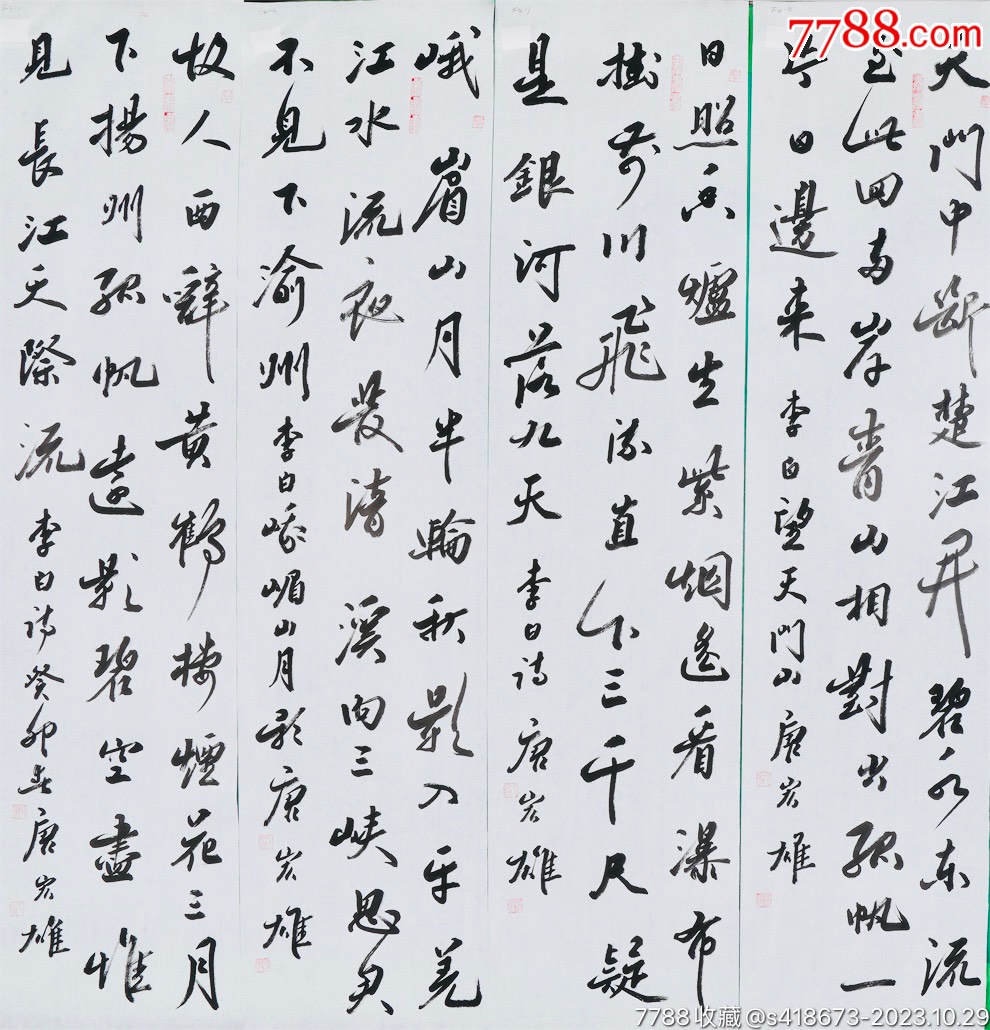 7788.com
天門中斷楚江开碧水东流
至此回两岸青山相對出孤帆一
片日邊来 李白望天門山 唐宏雄
日照香爐生紫烟遥看瀑布
挂前川飛流直下三千尺疑
是銀河落九天 李白诗 唐宏雄
峨嵋山月半輪秋影入平羌
江水流夜發清溪向三峡思君
不見下渝州 李白峨嵋山月歌 唐宏雄
故人西辭黄鶴楼煙花三月
下揚州孤帆遠影碧空盡惟
見長江天際流 李白诗癸卯春唐宏雄
7788收藏@s418673-2023.10.29